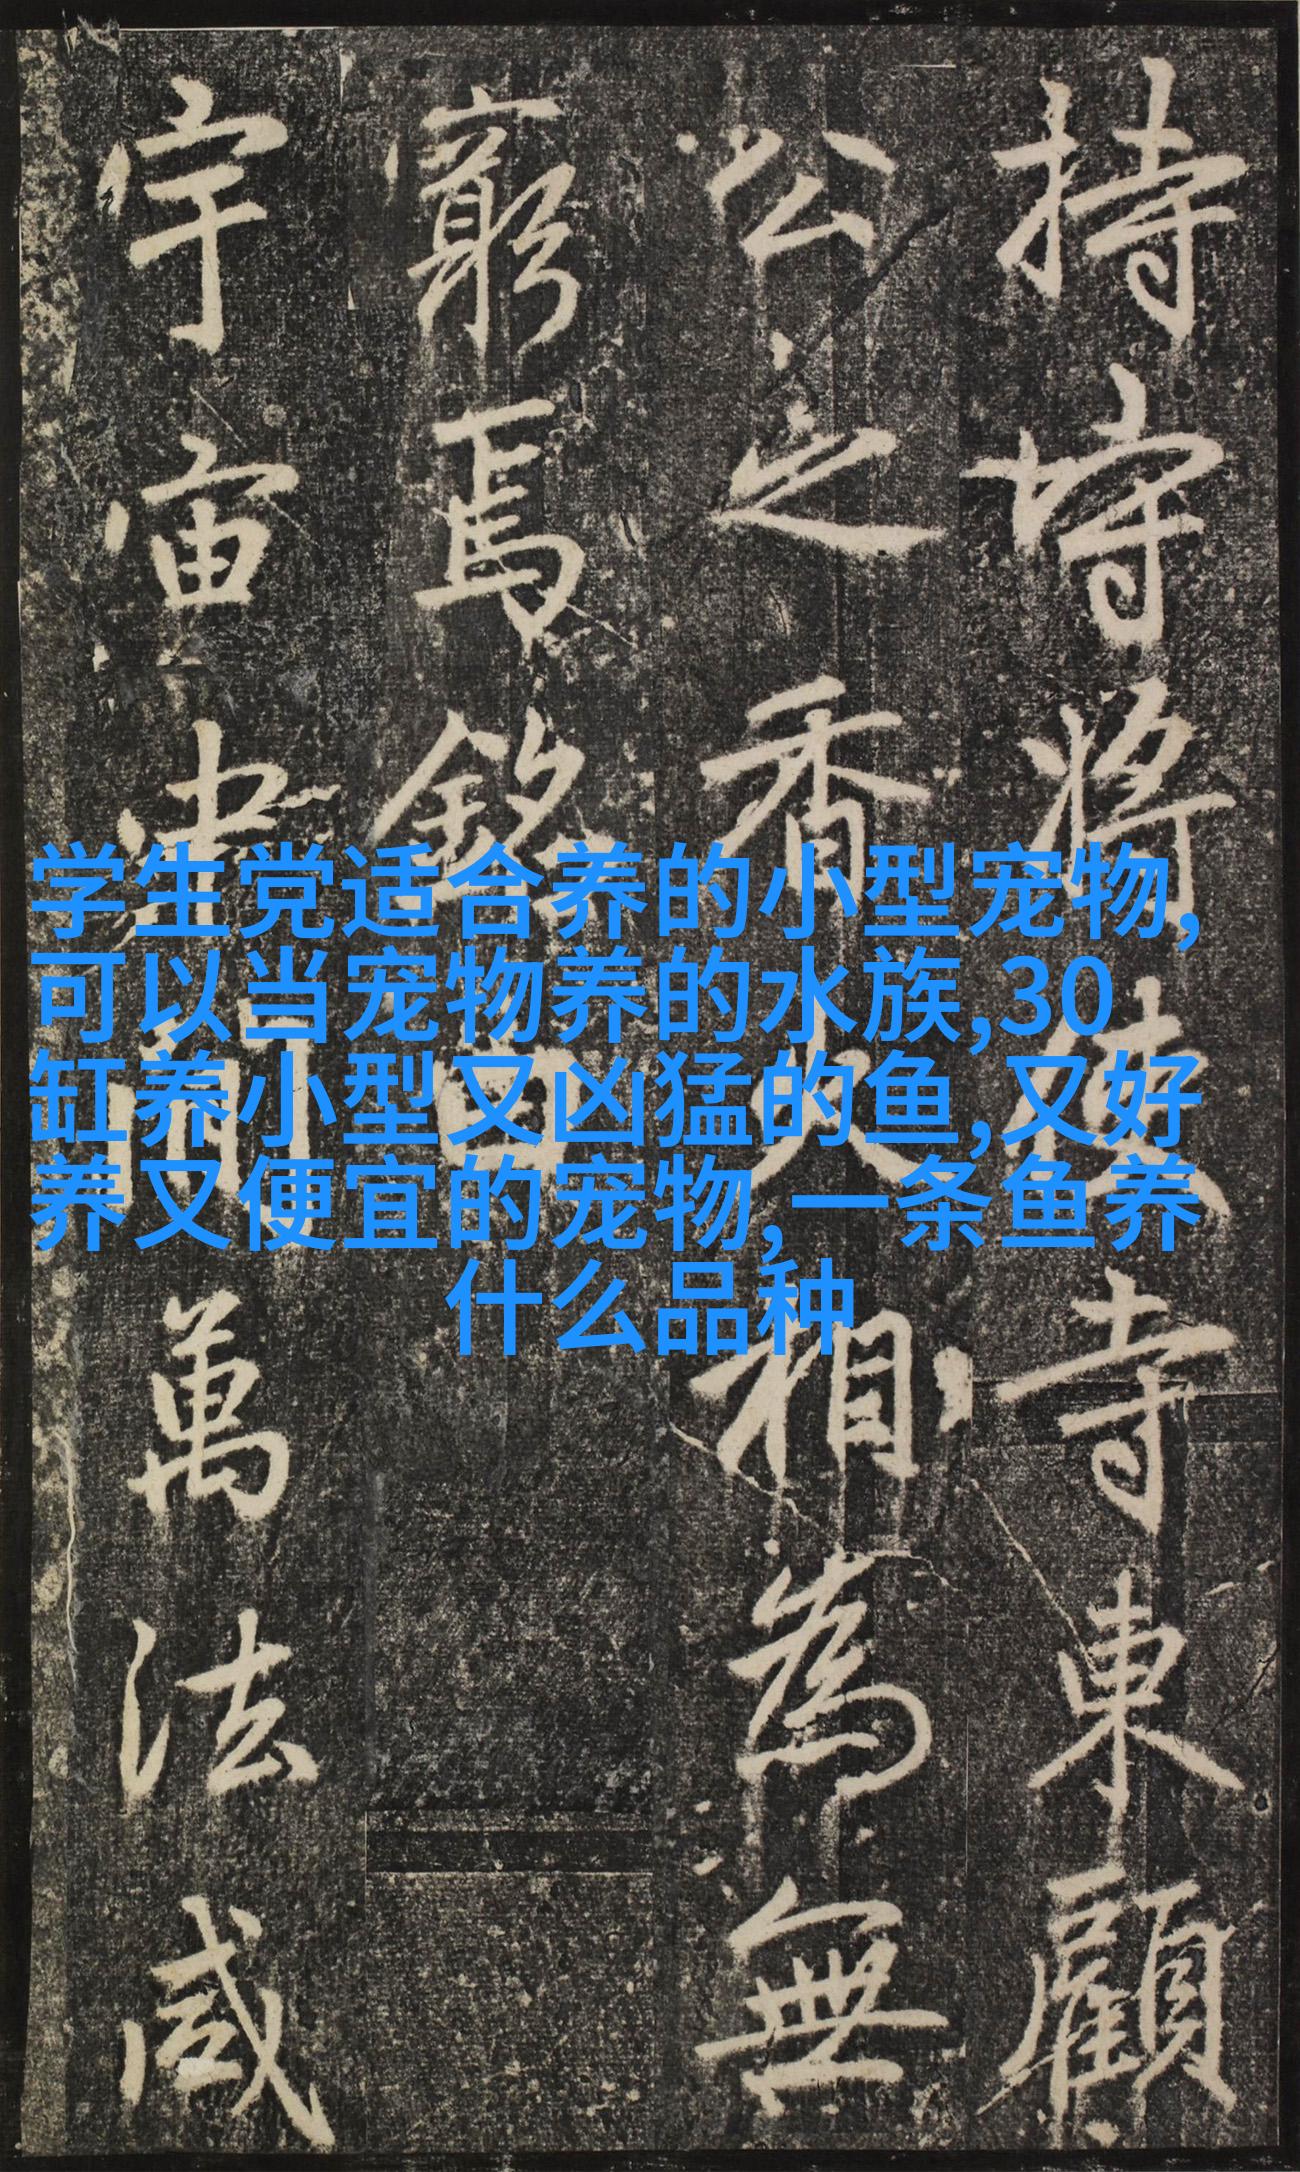 持守將使寺東顧
公之香火相為無
窮焉銘曰
宇宙中間萬法咸
学生党适合养的小型宠物,
可以当宠物养的水族,30
缸养小型又凶猛的鱼,又好
养又便宜的宠物,一条鱼养
什么品种